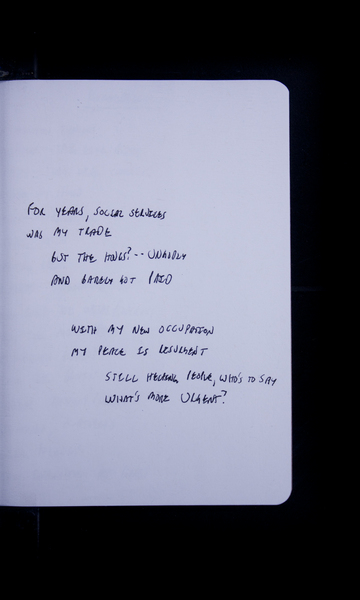 FOR YEARS, SOCIAL SERVICES
WAS MY TRADE
BUT THE HOURS? -- UNGODLY
AND BARELY GOT PAID
WITH MY NEW OCCUPATION
MY PEACE IS RESURGENT
STILL HELPING PEOPLE, WHO'S TO SAY
WHAT'S MORE URGENT?